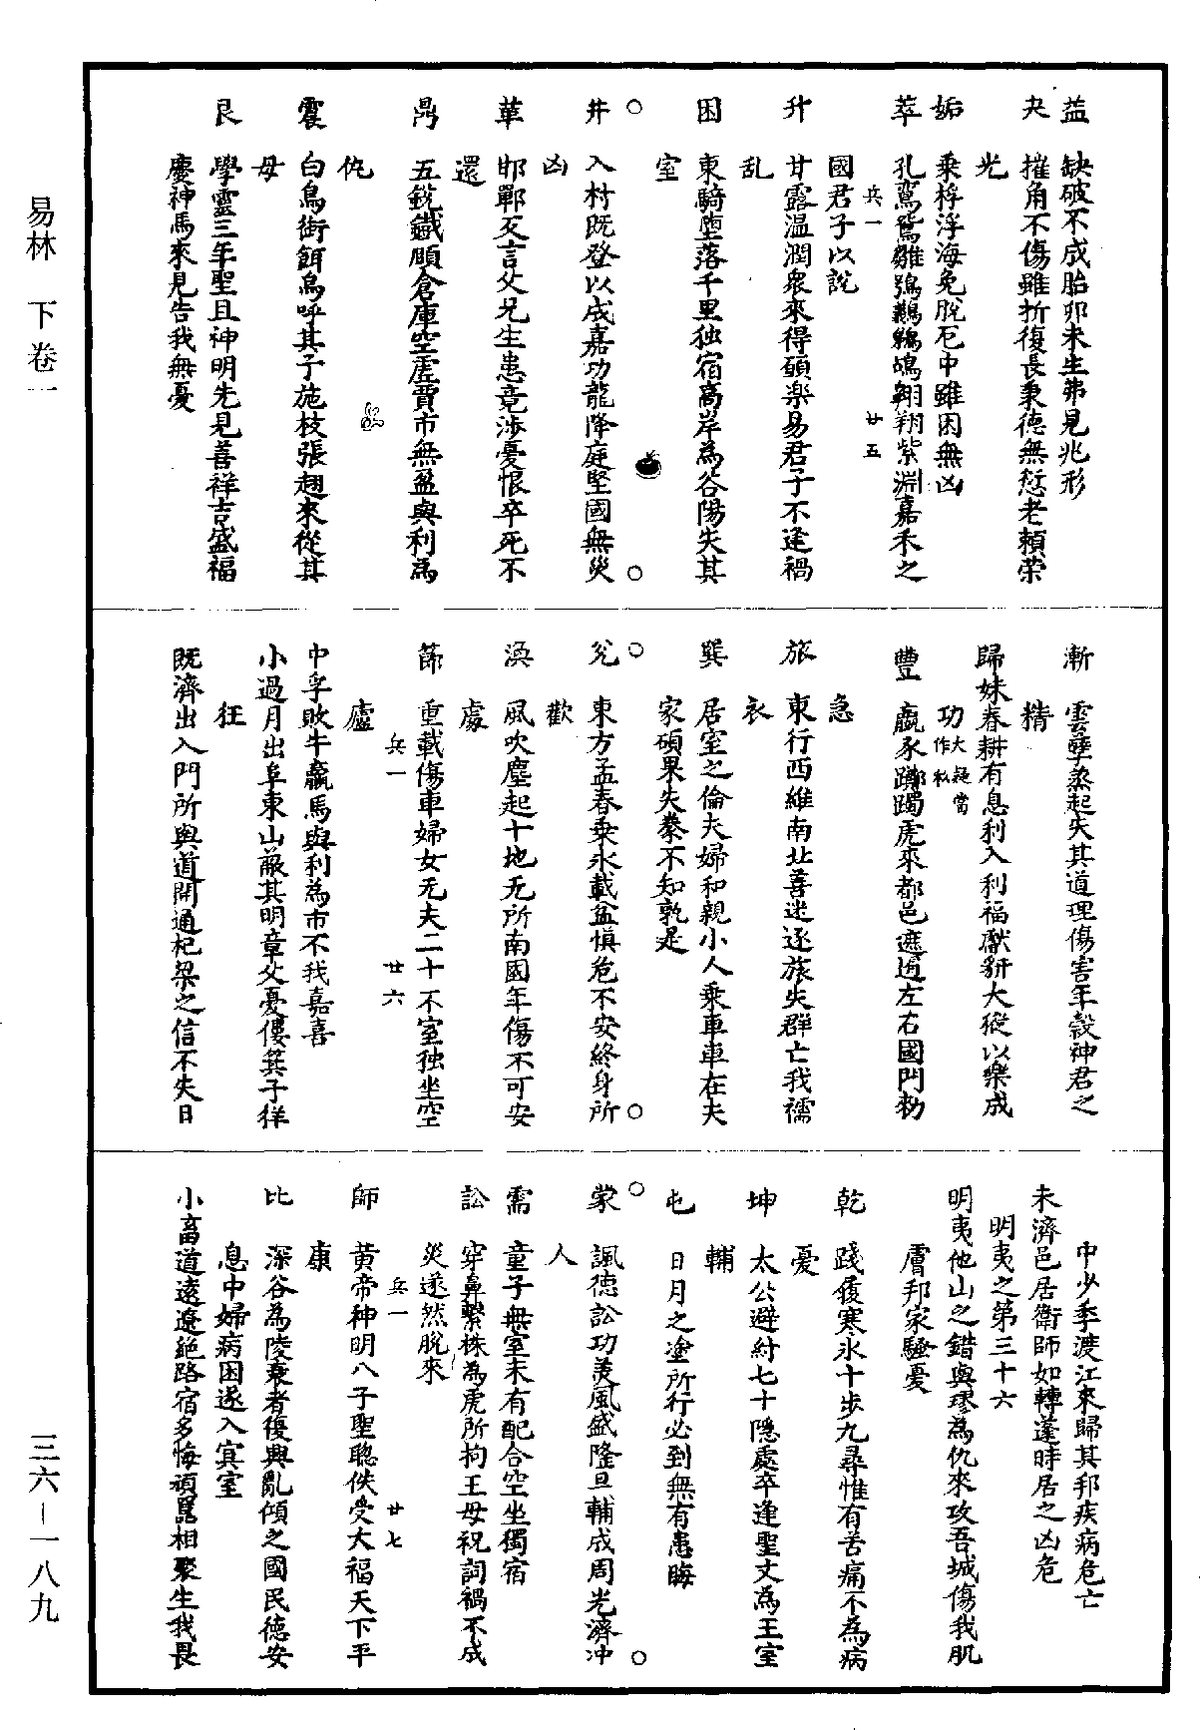 益　缺破不成胎卵未生弗見兆形
夬　摧角不傷雖折復長秉德無愆老賴荣
光
姤　乘桴浮海免脫厄中雖困無凶
萃　孔鸞鴛雛鵷鸐鶼鴣翱翔紫淵嘉禾之
兵一　廿五
國君子以說
升　甘露温潤衆來得願楽易君子不逢禍
乱
困　東騎墮落千里独宿高岸為谷陽失其
室
井　入村既登以成嘉功龍降庭堅國無災
凶
革　邯鄲交言父兄生患竟涉憂恨卒死不
還
鼎　五銳鐵頤倉庫空虛賈市無盈與利為
仇
震　白鳥銜餌鳥呼其子施枝張翅來從其
母
艮　學靈三年聖且神明先見善祥吉盛福
慶神馬來見告我無憂
漸　雲孽蒸起失其道理傷害年穀神君之
精
歸妹春耕有息利入利福獻豜大豵以樂成
功大疑當作私
豐　羸豕蹢躅虎來都邑遮遏左右國門勑
急
旅　東行西維南北善迷逐旅失群亡我襦
衣
巽　居室之倫夫婦和親小人乘車車在夫
家碩果失纂不知孰是
兌　東方孟春乗氷載盆慎危不安終身所
歡
渙　風吹塵起十地无所南國年傷不可安
處
節　重載傷車婦女无夫二十不室独坐空
兵一　廿六
廬
中孚敗牛羸馬與利為市不我嘉喜
小過月出阜東山蔽其明章父憂僂箕子徉
狂
既濟出入門所與道開通杞梁之信不失日
中少季渡江來歸其邦疾病危亡
未濟邑居衛師如轉蓬時居之凶危
明夷之第三十六
明夷他山之錯與璆為仇來攻吾城傷我肌
膚邦家騷憂
乾　踐履寒氷十步九尋惟有苦痛不為病
憂
坤　太公避紂七十隱處卒逢聖丈為王室
輔
屯　日月之塗所行必到無有患晦
蒙　諷德訟功美風盛隆旦輔成周光濟冲
人
需　童子無室未有配合空坐獨宿
訟　穿鼻繫株為虎所拘王母祝詞禍不成
災遂然脫來
兵一　廿七
師　黄帝神明八子聖聦佚受大福天下平
康
比　深谷為陵衰者復興亂傾之國民德安
息中婦病困遂入㝠室
小畜道遠遼絶路宿多悔頑嚚相聚生我畏
易林　下卷一
三六－一八九